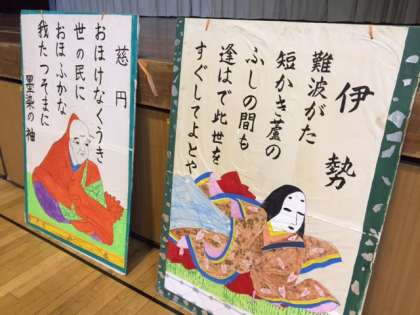 伊勢
難波がた
短かき蘆の
ふしの間も
逢はで此世を
すぐしてよとや
慈円
おほけなくうき
世の民に
おほふかな
我たつそまに
墨染の袖